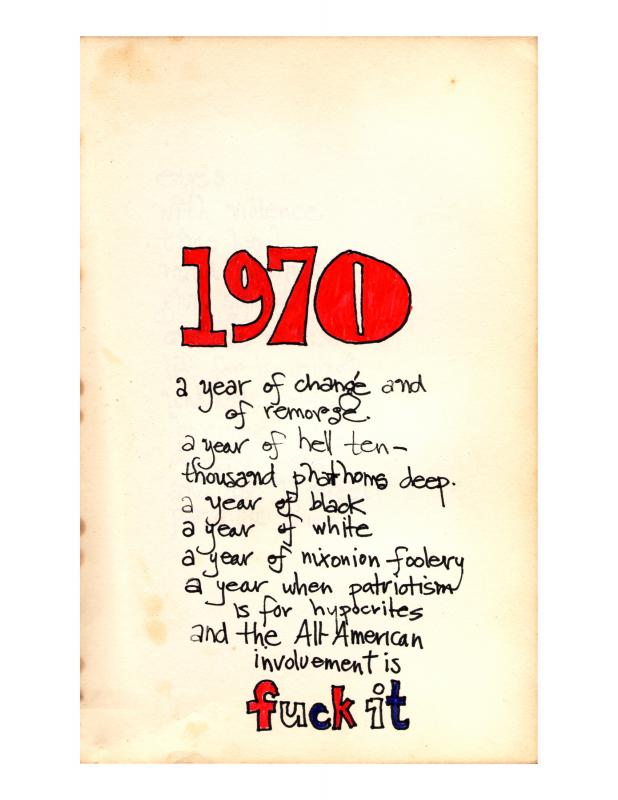 eyes
with violence
1970
a year of change and
of remorse.
a year of hell ten-
thousand phathoms deep.
a year of black
a year of white
a year of nixonion foolery
a year when patriotism
is for hypocrites
and the All-American
involvement is
fuck it